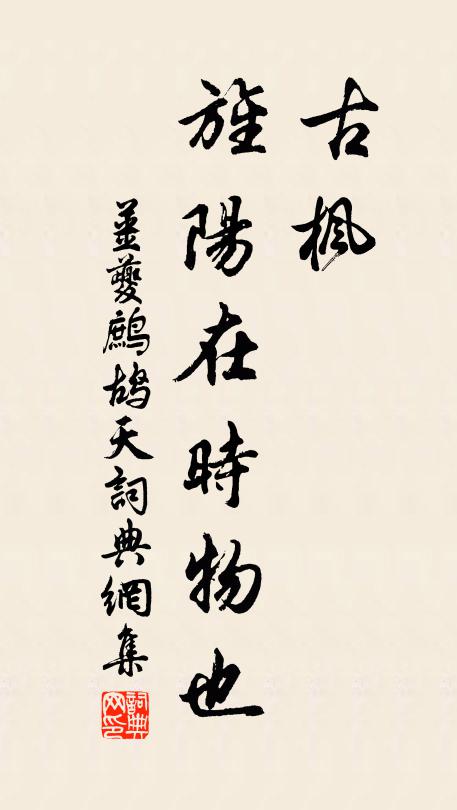 古楓
旌陽在時物也
姜夔鷓鴣天詞典網集
詞典網印